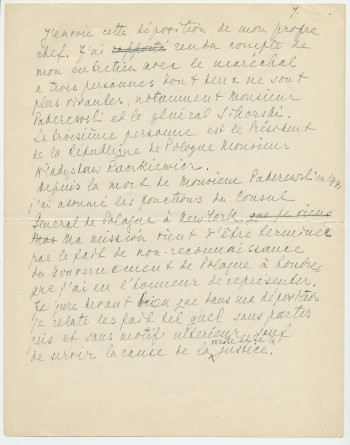 7.
J'envoie cette déposition de mon propre
chef. J'ai rapporté rendu compte de
mon entretien avec le maréchal
a trois personnes dont deux ne sont
plus vivantes, notamment Monsieur
Paderewski et le général Sikorski.
Le troisième personne est le Président
de la République de Pologne Monsieur
Władysław Raczkiewicz.
Depuis la mort de Monsieur Paderewski en 1941
j'ai assumé les fonctions de Consul
General de Pologne à New York, que je viens
Ma mission vient d'être terminée
par le fait de non-reconnaissance
du Gouvernement de Pologne à Londres
que j'ai eu l'honneur de representer.
Je jure devant Dieu que dans ma déposition
je relate les fait tel quel sans parti
pris et sans motif ulterieur sauf
de servir la cause de la vérité et de la justice.